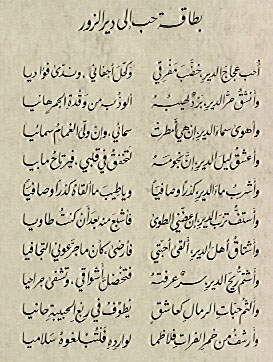 بطاقة حب إلى دير الزور
أحب عجاج الدير خضّب مفرقي وكحّل أجفاني، وندّى فؤاديا
وأنشق حرّ الدير بردٌ لهيبه ألوذ به من وقدة الجمر هانيا
وأهوى سماء الدير إن هي أمطرت سمائي، وإن ولّى الغمام سمائيا
وأعشق ليل الدير إن نجومه لتخفق في قلبي، فيرتاح ما بيا
وأشرب ماء الدير كدراً وصافياً ويا طيب ما ألقاه كدراً وصافيا
وأستف ترب الدير إن عضّني الطوى فأشبع منه بعد أن كنت طاويا
وأشتاق أهل الدير ألقى أحبتي فأرضى، كأن ما جرّعوني التجافيا
وأشتم ريح الدير سرٌ عرفته فتخضلّ أشواقي، وتشفى جراحيا
وألثم حبات الرمال كعاشق يطوّف في ربع الحبيبة حانيا
وأرشف من خمر الفرات فلا ظما لوارده فلتبلغوه سلاميا